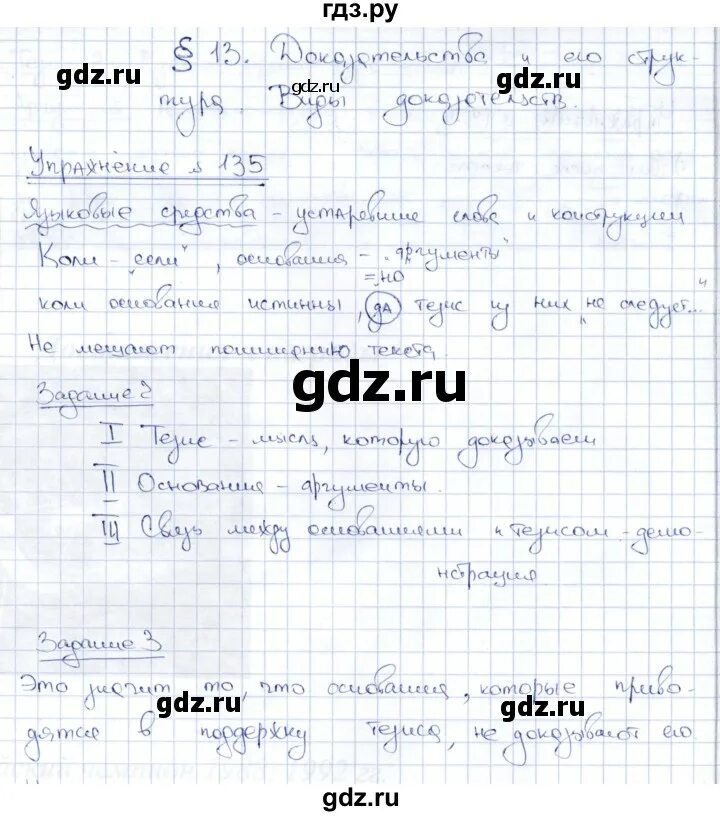 гдз.ру
§ 13. Доказательства и его струк-
gdz.ru gdz.ru gdz.ru
тура. Виды доказательств.
Упражнение № 135
Языковые средства - устаревшие слова и конструкции
Коли - "если", основания - "аргументы"
= "но
коли основания истинны, да тезис из них не следует..."
Не мешают пониманию текста.
gdz.ru
Задание 2
I Тезис - мысль, которую доказываем
II Основания - аргументы.
III Связь между основаниями и тезисом - демо-
нстрация.
Задание 3
Это значит то, что основания, которые приво-
gdz.ru gdz.ru
дятся в поддержку тезиса, не доказывают его.
gdz.ru